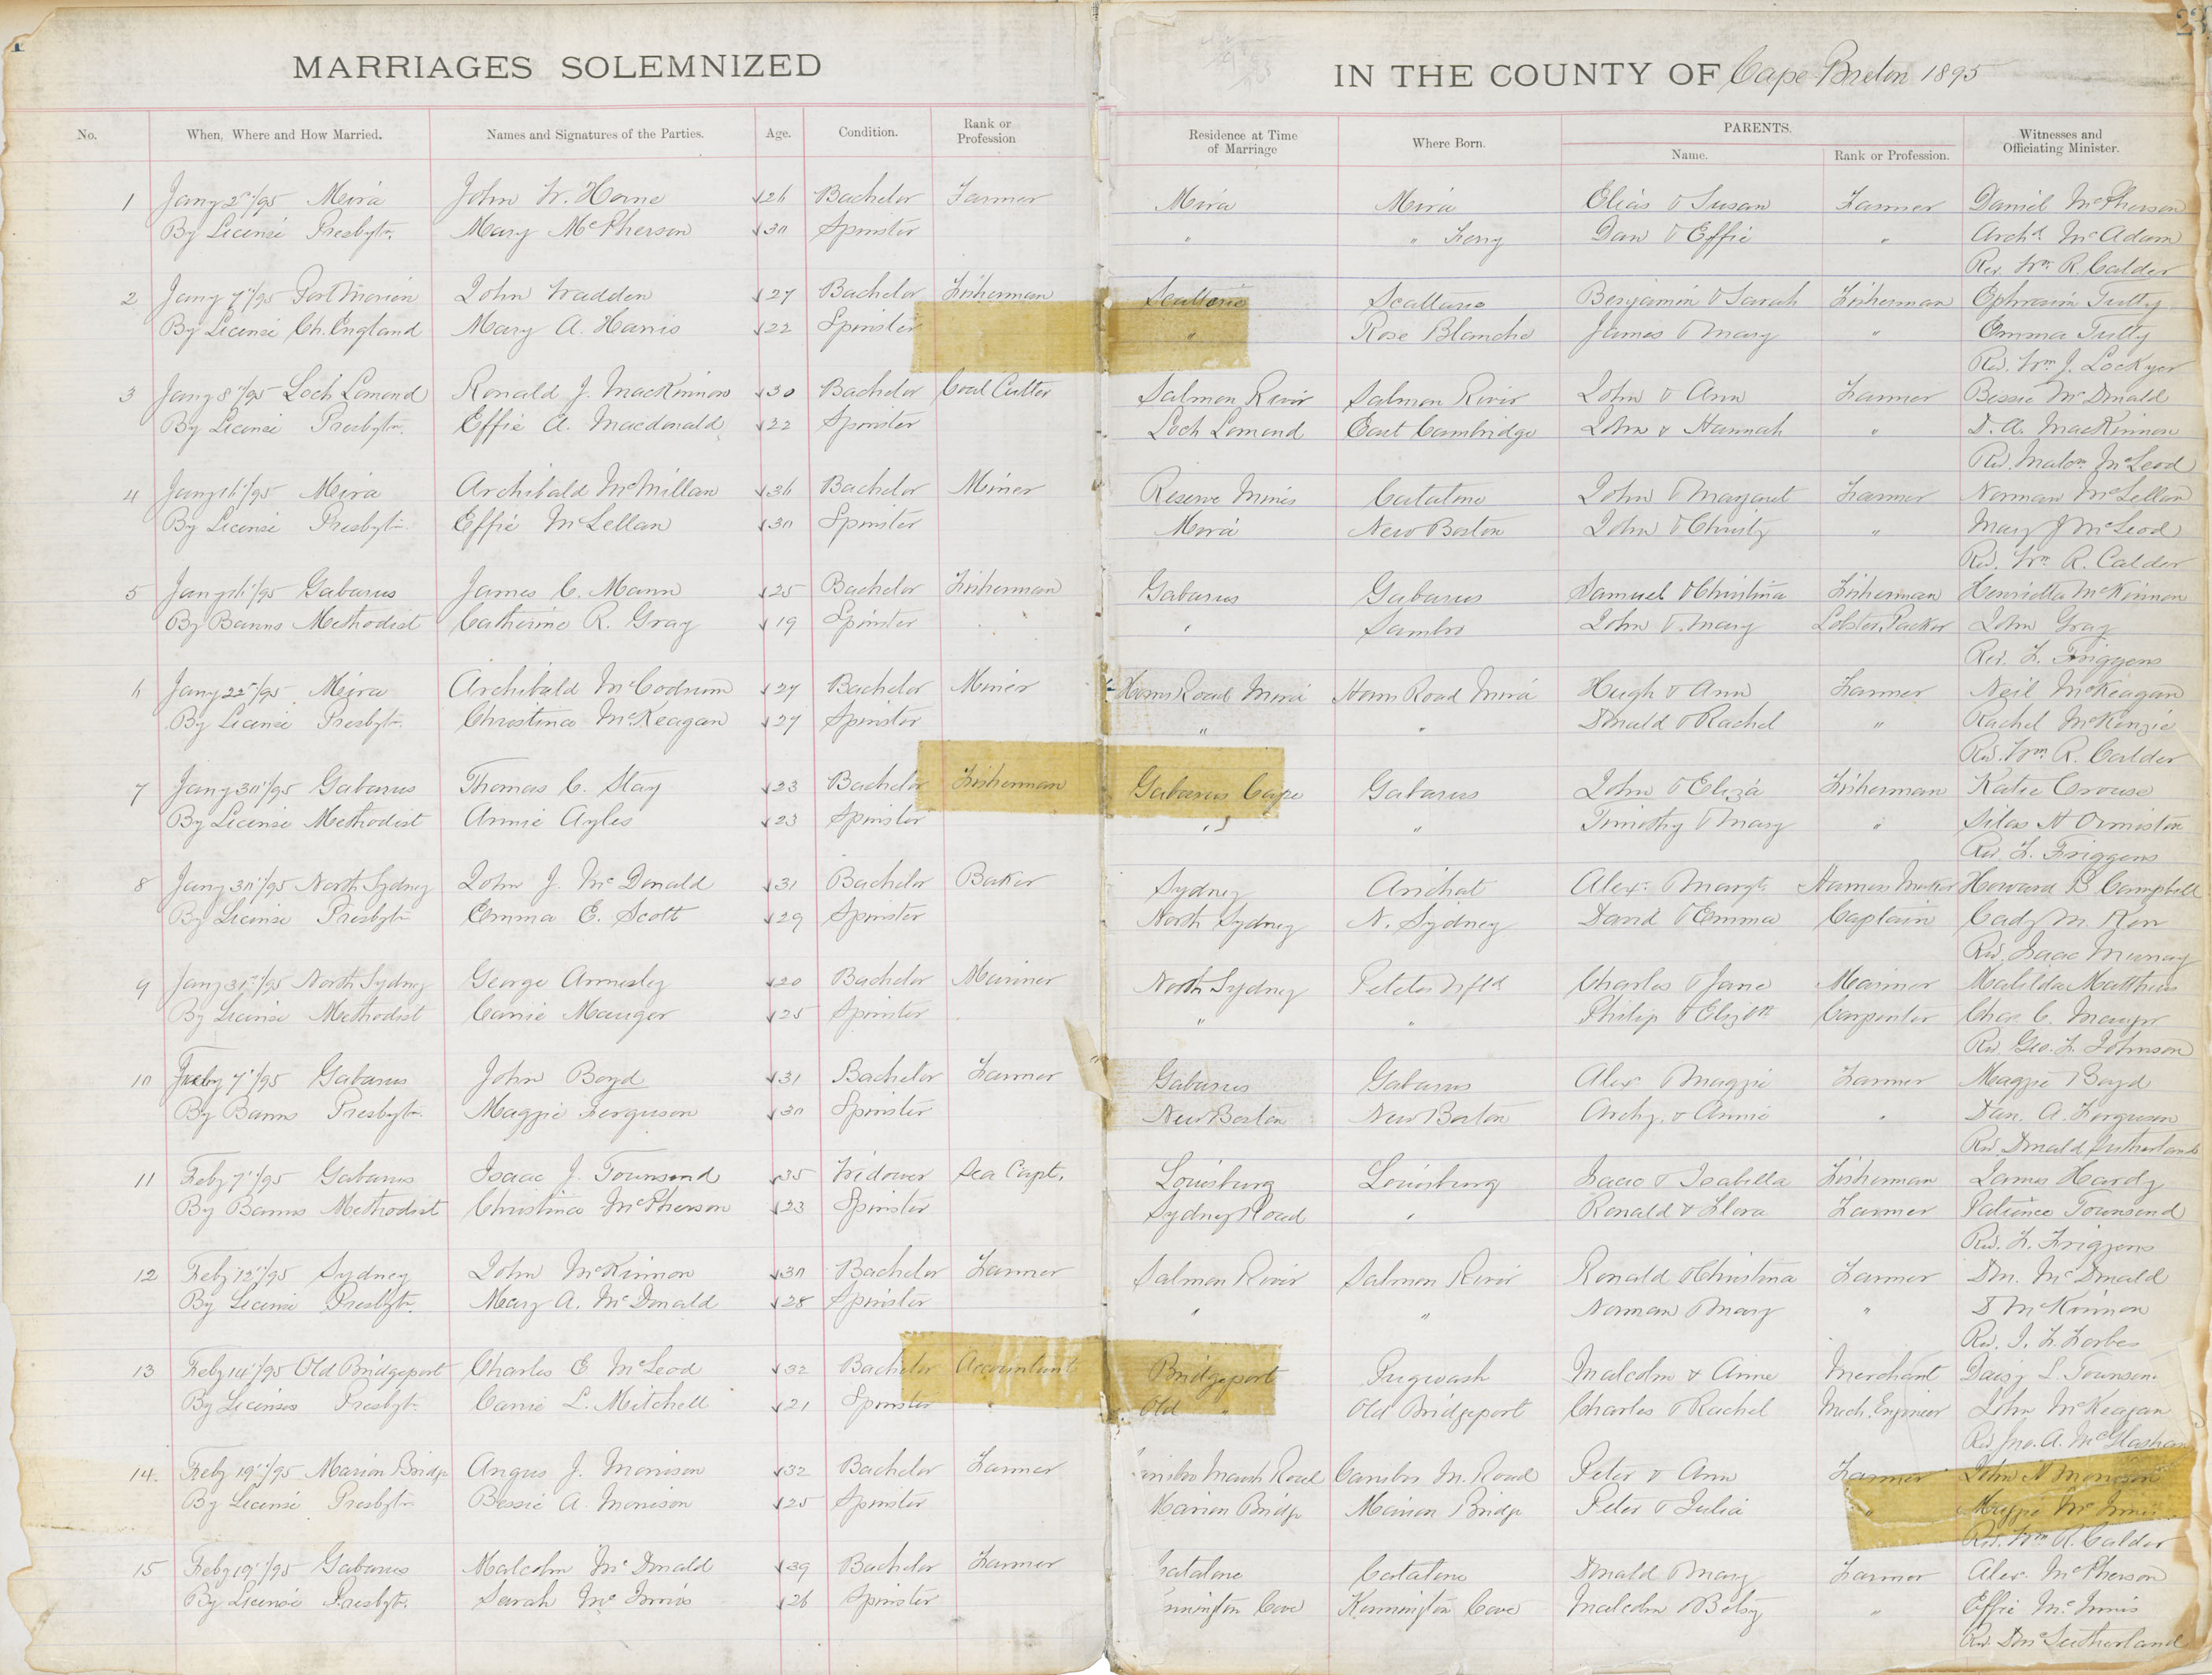 MARRIAGES SOLEMNIZED IN THE COUNTY OF Cape Breton 1895
No. When, Where and How Married. Names and Signatures of the Parties. Age. Condition. Rank or Profession Residence at Time of Marriage Where Born. PARENTS. Name. Rank or Profession. Witnesses and Officiating Minister.
1 Jany 2"/95 Mira John W. Horne 26 Bachelor Farmer Mira Mira Elias & Susan Farmer Daniel McPherson
By License Presbytn. Mary McPherson 30 Spinster " " Ferry Dan & Effie " Archd McAdam
Rev. Wm R. Calder
2 Jany 7"/95 Port Morien John Wadden 27 Bachelor Fisherman Scattarie Scattarie Benjamin & Sarah Fisherman Ephraim Tutty
By License Ch. England Mary A. Harris 22 Spinster " Rose Blanche James & Mary " Emma Tutty
Rev. Wm J. Lockyer
3 Jany 8"/95 Loch Lomond Ronald J. MacKinnon 30 Bachelor Coal Cutter Salmon River Salmon River John & Ann Farmer Bessie McDonald
By License Presbytn. Effie A. Macdonald 22 Spinster Loch Lomond East Cambridge John & Hannah " D. A. MacKinnon
Rev. Malcm. McLeod
4 Jany 16"/95 Mira Archibald McMillan 36 Bachelor Miner Reserve Mines Catalone John & Margaret Farmer Norman McLellan
By License Presbytn. Effie McLellan 30 Spinster Mira New Boston John & Christy " Mary J McLeod
Rev. Wm R. Calder
5 Jany 16"/95 Gabarus James C. Mann 25 Bachelor Fisherman Gabarus Gabarus Samuel & Christina Fisherman Henrietta McKinnon
By Banns Methodist Catherine R. Gray 19 Spinster " Sambro John & Mary Lobster Packer John Gray
Rev. F. Friggens
6 Jany 22"/95 Mira Archibald McCodrum 27 Bachelor Miner Horns Road Mira Horn Road Mira Hugh & Ann Farmer Neil McKeagan
By License Presbytn. Christina McKeagan 27 Spinster " " Donald & Rachel " Rachel McKenzie
Rev. Wm R. Calder
7 Jany 30"/95 Gabarus Thomas C. Stay 23 Bachelor Fisherman Gabarus Cape Gabarus John & Eliza Fisherman Katie Crouse
By License Methodist Annie Ayles 23 Spinster " " Timothy & Mary " Silas H Ormiston
Rev. F. Friggens
8 Jany 30"/95 North Sydney John J. McDonald 31 Bachelor Baker Sydney Arichat Alex. & Margt. Harness Maker Howard B Campbell
By License Presbytn Emma E. Scott 29 Spinster North Sydney N. Sydney David & Emma Captain Cady M. Kerr
Rev. Isaac Murray
9 Jany 31"/95 North Sydney George Annesley 20 Bachelor Mariner North Sydney Nfld Charles & Jane Mariner Matilda Matthews
By License Methodist Carrie Mauger 25 Spinster " " Philip & Elizth Carpenter Chas C. Mauger
Rev Geo. F. Johnson
10 Feby 7"/95 Gabarus John Boyd 31 Bachelor Farmer Gabarus Gabarus Alex & Maggie Farmer Maggie Boyd
By Banns Presbytn. Maggie Ferguson 30 Spinster New Boston New Boston Archy. & Annie " Dan. A. Ferguson
Rev. Donald Sutherland
11 Feby 7"/95 Gabarus Isaac J. Townsend 35 Widower Sea Capt. Louisburg Louisburg Isaac & Isabella Fisherman James Hardy
By Banns Methodist Christina McPherson 23 Spinster Sydney Road " Ronald & Flora Farmer Patience Townsend
Rev. F. Friggens
12 Feby 12"/95 Sydney John McKinnon 30 Bachelor Farmer Salmon River Salmon River Ronald & Christina Farmer Dn. McDonald
By License Presbytn. Mary A. McDonald 28 Spinster " " Norman & Mary " D McKinnon
Rev. J. F. Forbes
13 Feby 14"/95 Old Bridgeport Charles E McLeod 32 Bachelor Accountant Bridgeport Pugwash Malcolm & Anne Merchant Daisy L. Townsen
By License Presbytn Carrie L. Mitchell 21 Spinster Old " Old Bridgeport Charles & Rachel Mech. Engineer John McKeagan
Rev Jno. A. McGlashan
14. Feby 19"/95 Marion Bridge Angus J. Morrison 32 Bachelor Farmer Marsh Road M. Road Peter & Ann Farmer John N Morrison
By License Presbytn Bessie A. Morrison 25 Spinster Marion Bridge Marion Bridge Peter & Julia " Maggie McInnis
Rev. Wm R. Calder
15 Feby 19"/95 Gabarus Malcolm McDonald 39 Bachelor Farmer Catalone Catalone Donald & Mary Farmer Alex. McPherson
By License Presbytn. Sarah McInnis 26 Spinster nnington Cove Kennington Cove Malcolm & Betsy " Effie McInnis
Rev. Dond Sutherland